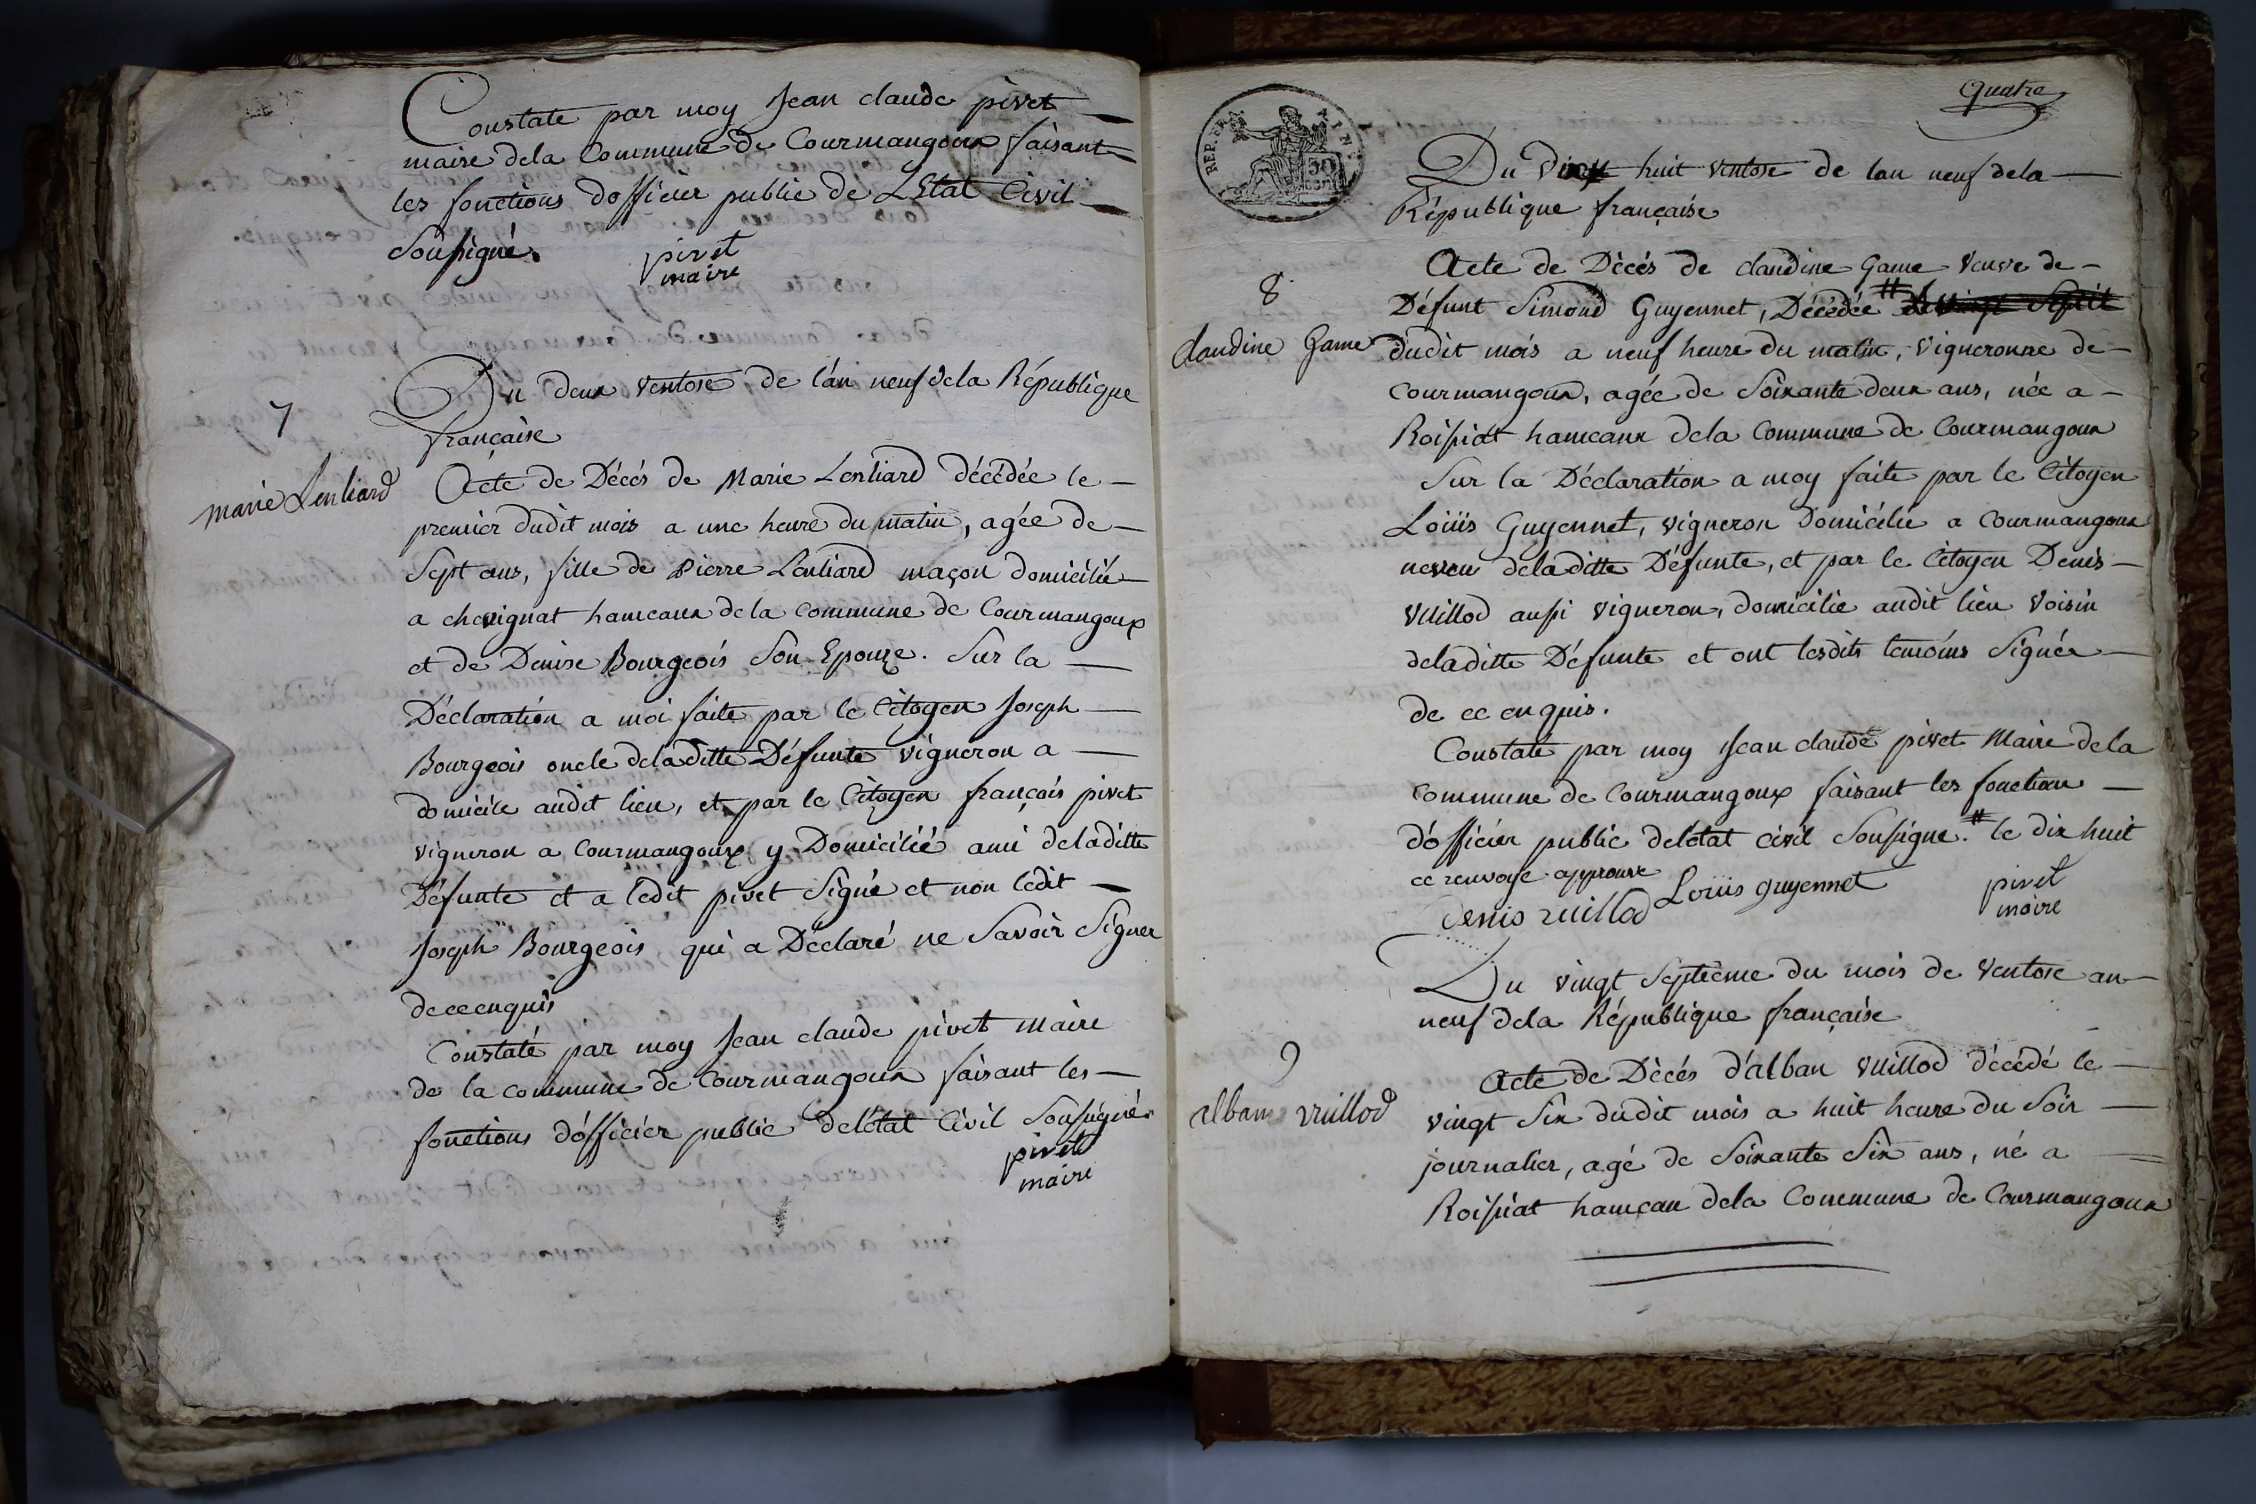 Constaté par moy Jean claude pivet
maire dela Commune de Courmangoux faisant
les fonctions dofficier public de LEtat Civil
Soussigné.
pivet
maire
7
Du deux ventose de l'an neuf dela République
française
marie Lenliard
Acte de Décés de Marie Lenliard décédée le
premier dudit mois a une heure du matin, agée de
Sept ans, fille de pierre Lenliard maçon domicilié
a chevignat hameaux dela commune de Courmangoux
et de Denise Bourgeois Son Epouze. Sur la
Déclaration a moi faite par le Citoyen Joseph
Bourgeois oncle deladitte Défunte vigneron a
domicile audit lieu, et par le Citoyen françois pivet
vigneron a Courmangoux y Domicilié ami deladitte
Défunte et a ledit pivet Signé et non ledit
Joseph Bourgeois qui a Déclaré ne Savoir Signer
de ce enquis
Constaté par moy Jean claude pivet maire
de la commune de Courmangoux faisant les
fonctions d'officier public del'état Civil Soussigné
pivet
maire
quatre
REP. FRA
50
CENT
Du huit ventose de lan neuf dela
République française
8
claudine Game
Acte de Décés de claudine Game veuve de
Défunt Simond Guyennet, Décédée #
dudit mois a neuf heure du matin, vigneronne de
Courmangoux, agée de Soixante deux ans, née a
Roissiat hameaux dela Commune de Courmangoux
Sur la Déclaration a moy faite par le Citoyen
Loüis Guyennet, vigneron Domicilié a Courmangoux
neveu deladitte Défunte, et par le Citoyen Denis
vuillod aussi vigneron, domicilié audit lieu Voisin
deladitte Défunte et ont lesdits temoins Signés
de ce enquis.
Constaté par moy Jean claude pivet Maire dela
Commune de Courmangoux faisant les fonction
d'officier public del'état civil Soussigne. # le dix huit
ce renvoye approuvé
Denis vuillod Loüis guyennet
pivet
maire
Du vingt Septième du mois de Ventose an
neuf dela République française
9
alban vuillod
Acte de Décés d'alban vuillod décédé le
vingt Six dudit mois a huit heure du Soir
journalier, agé de Soixante Six ans, né a
Roissiat hameau dela Commune de Courmangoux